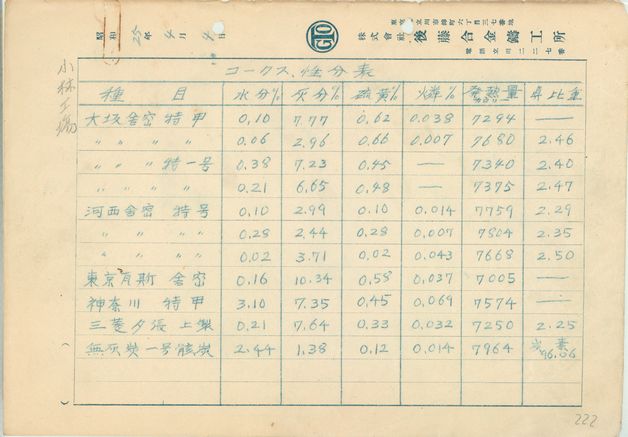 昭和 25年 4月 4日
GTO
東京都立川市錦町六丁目三七番地
株式會社 後藤合金鑄工所
電話立川二二七番
小林工場
コークス、性分表
種目 水分% 灰分% 硫黄% 燐% 発熱量 カロリー 真比重
大坂舎密 特甲 0.10 7.77 0.62 0.038 7294 —
〃 〃 〃 〃 0.06 2.96 0.66 0.007 7680 2.46
〃 〃 〃 特一号 0.38 7.23 0.45 — 7340 2.40
〃 〃 〃 〃 0.21 6.65 0.48 — 7375 2.47
河西舎密 特号 0.10 2.99 0.10 0.014 7759 2.29
〃 〃 〃 〃 0.28 2.44 0.28 0.007 7804 2.35
〃 〃 〃 〃 0.02 3.71 0.02 0.043 7668 2.50
東京瓦斯 舎密 0.16 10.34 0.58 0.037 7005 —
神奈川 特甲 3.10 7.35 0.45 0.069 7574 —
三菱夕張 上製 0.21 7.64 0.33 0.032 7250 2.25
無灰炭一号骸炭 2.44 1.38 0.12 0.014 7964 炭素 96.06
222